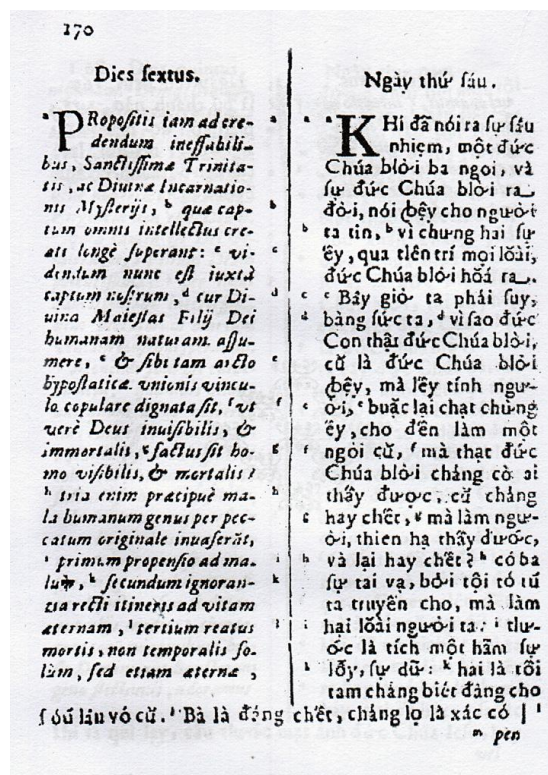 170
Dies ſextus.
ᵃ PRopoſitis iam ad cre-
dendum ineffabili-
bus, Sanctiſſimæ Trinita-
tis, ac Diuinæ Incarnatio-
nis Myſterijs, ᵇ quæ cap-
tum omnis intellectus cre-
ati longè ſuperant: ᶜ vi-
dendum nunc eſt iuxtà
captum noſtrum, ᵈ cur Di-
uina Maieſtas Filij Dei
humanam naturam aſſu-
mere, ᵉ & ſibi tam arcto
hypoſtaticæ vnionis vincu-
lo copulare dignata ſit, ᶠ vt
verè Deus inuiſibilis, &
immortalis, ᵍ factus ſit ho-
mo viſibilis, & mortalis?
ʰ tria enim præcipuè ma-
la humanum genus per pec-
catum originale inuaſerãt,
ⁱ primum propenſio ad ma-
lum, ᵏ ſecundum ignoran-
tia recti itineris ad vitam
æternam, ˡ tertium reatus
mortis, non temporalis ſo-
lùm, ſed etiam æternæ,
Ngày thứ ſáu.
ᵃ KHi đã nói ra ſự ſâu
nhiệm, một đức
Chúa blời ba ngọi, và
ſự đức Chúa blời ra
đời, nói ꞗệy cho người
ta tin, ᵇ vì chưng hai ſự
ếy, qua tlên trí mọi lŏài,
đức Chúa blời hŏá ra.
ᶜ Bây giờ ta phải ſuy,
bàng ſức ta, ᵈ vì ſao đức
Con thật đức Chúa blời,
cũ là đức Chúa blời
ꞗệy, mà lếy tính ngư-
ời, ᵉ buặc lại chạt chưng
ếy, cho đến làm một
ngôi cũ, ᶠ mà thạt đức
Chúa blời chảng cờ ai
thấy được, cũ chảng
hay chết, ᵍ mà làm ngư-
ời, thien hạ thấy được,
và lại hay chết? ʰ có ba
ſự tai vạ, bởi tội tó tũ
ta truyền cho, mà làm
hai lŏài người ta: ⁱ thư-
ớc là tích một hãm ſự
lỗy, ſự dữ: ᵏ hai là tối
tam chảng biét đàng cho
ſóủ lâu vô cũ. ˡ Bà là đáng chết, chảng lọ là xác có
ᵐ pen